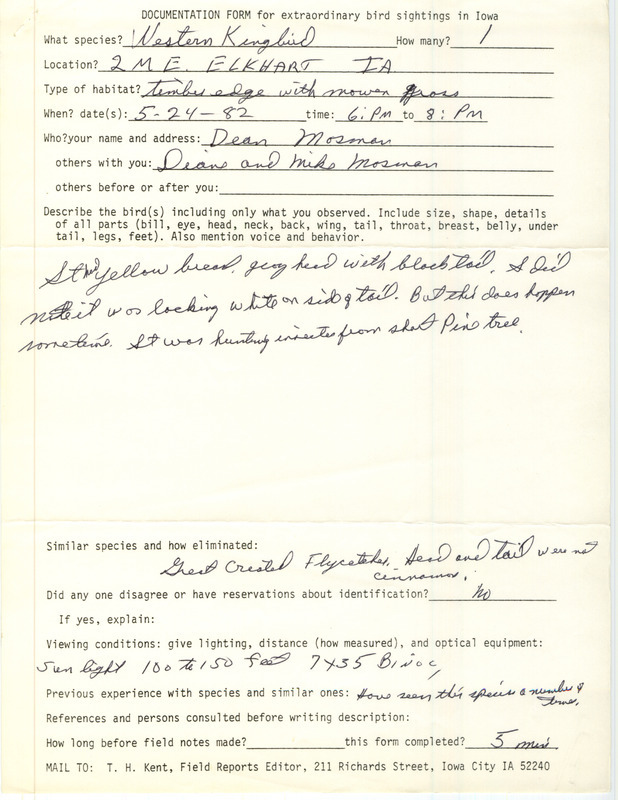 DOCUMENTATION FORM for extraordinary bird sightings in Iowa
What species? Western Kingbird How many? 1
Location? 2 M E. ELKHART IA
Type of habitat? timber edge with mowen grass
When? date(s): 5-24-82 time: 6: PM to 8: PM
Who? your name and address: Dean Mosman
others with you: Diane and Mike Mosman
others before or after you:
Describe the bird(s) including only what you observed. Include size, shape, details
of all parts (bill, eye, head, neck, back, wing, tail, throat, breast, belly, under
tail, legs, feet). Also mention voice and behavior.
It had yellow breast, gray head with black tail. I did
note it was lacking white on side of tail. But this does happen
sometime. It was hunting insects from short Pine tree.
Similar species and how eliminated:
Great Crested Flycatcher. Head and tail were not
cinnamon.
Did any one disagree or have reservations about identification? No
If yes, explain:
Viewing conditions: give lighting, distance (how measured), and optical equipment:
Sun light 100 to 150 feet 7X35 Binoc,
Previous experience with species and similar ones: Have seen this species a number of
times.
References and persons consulted before writing description:
How long before field notes made? this form completed? 5 min
MAIL TO: T. H. Kent, Field Reports Editor, 211 Richards Street, Iowa City IA 52240